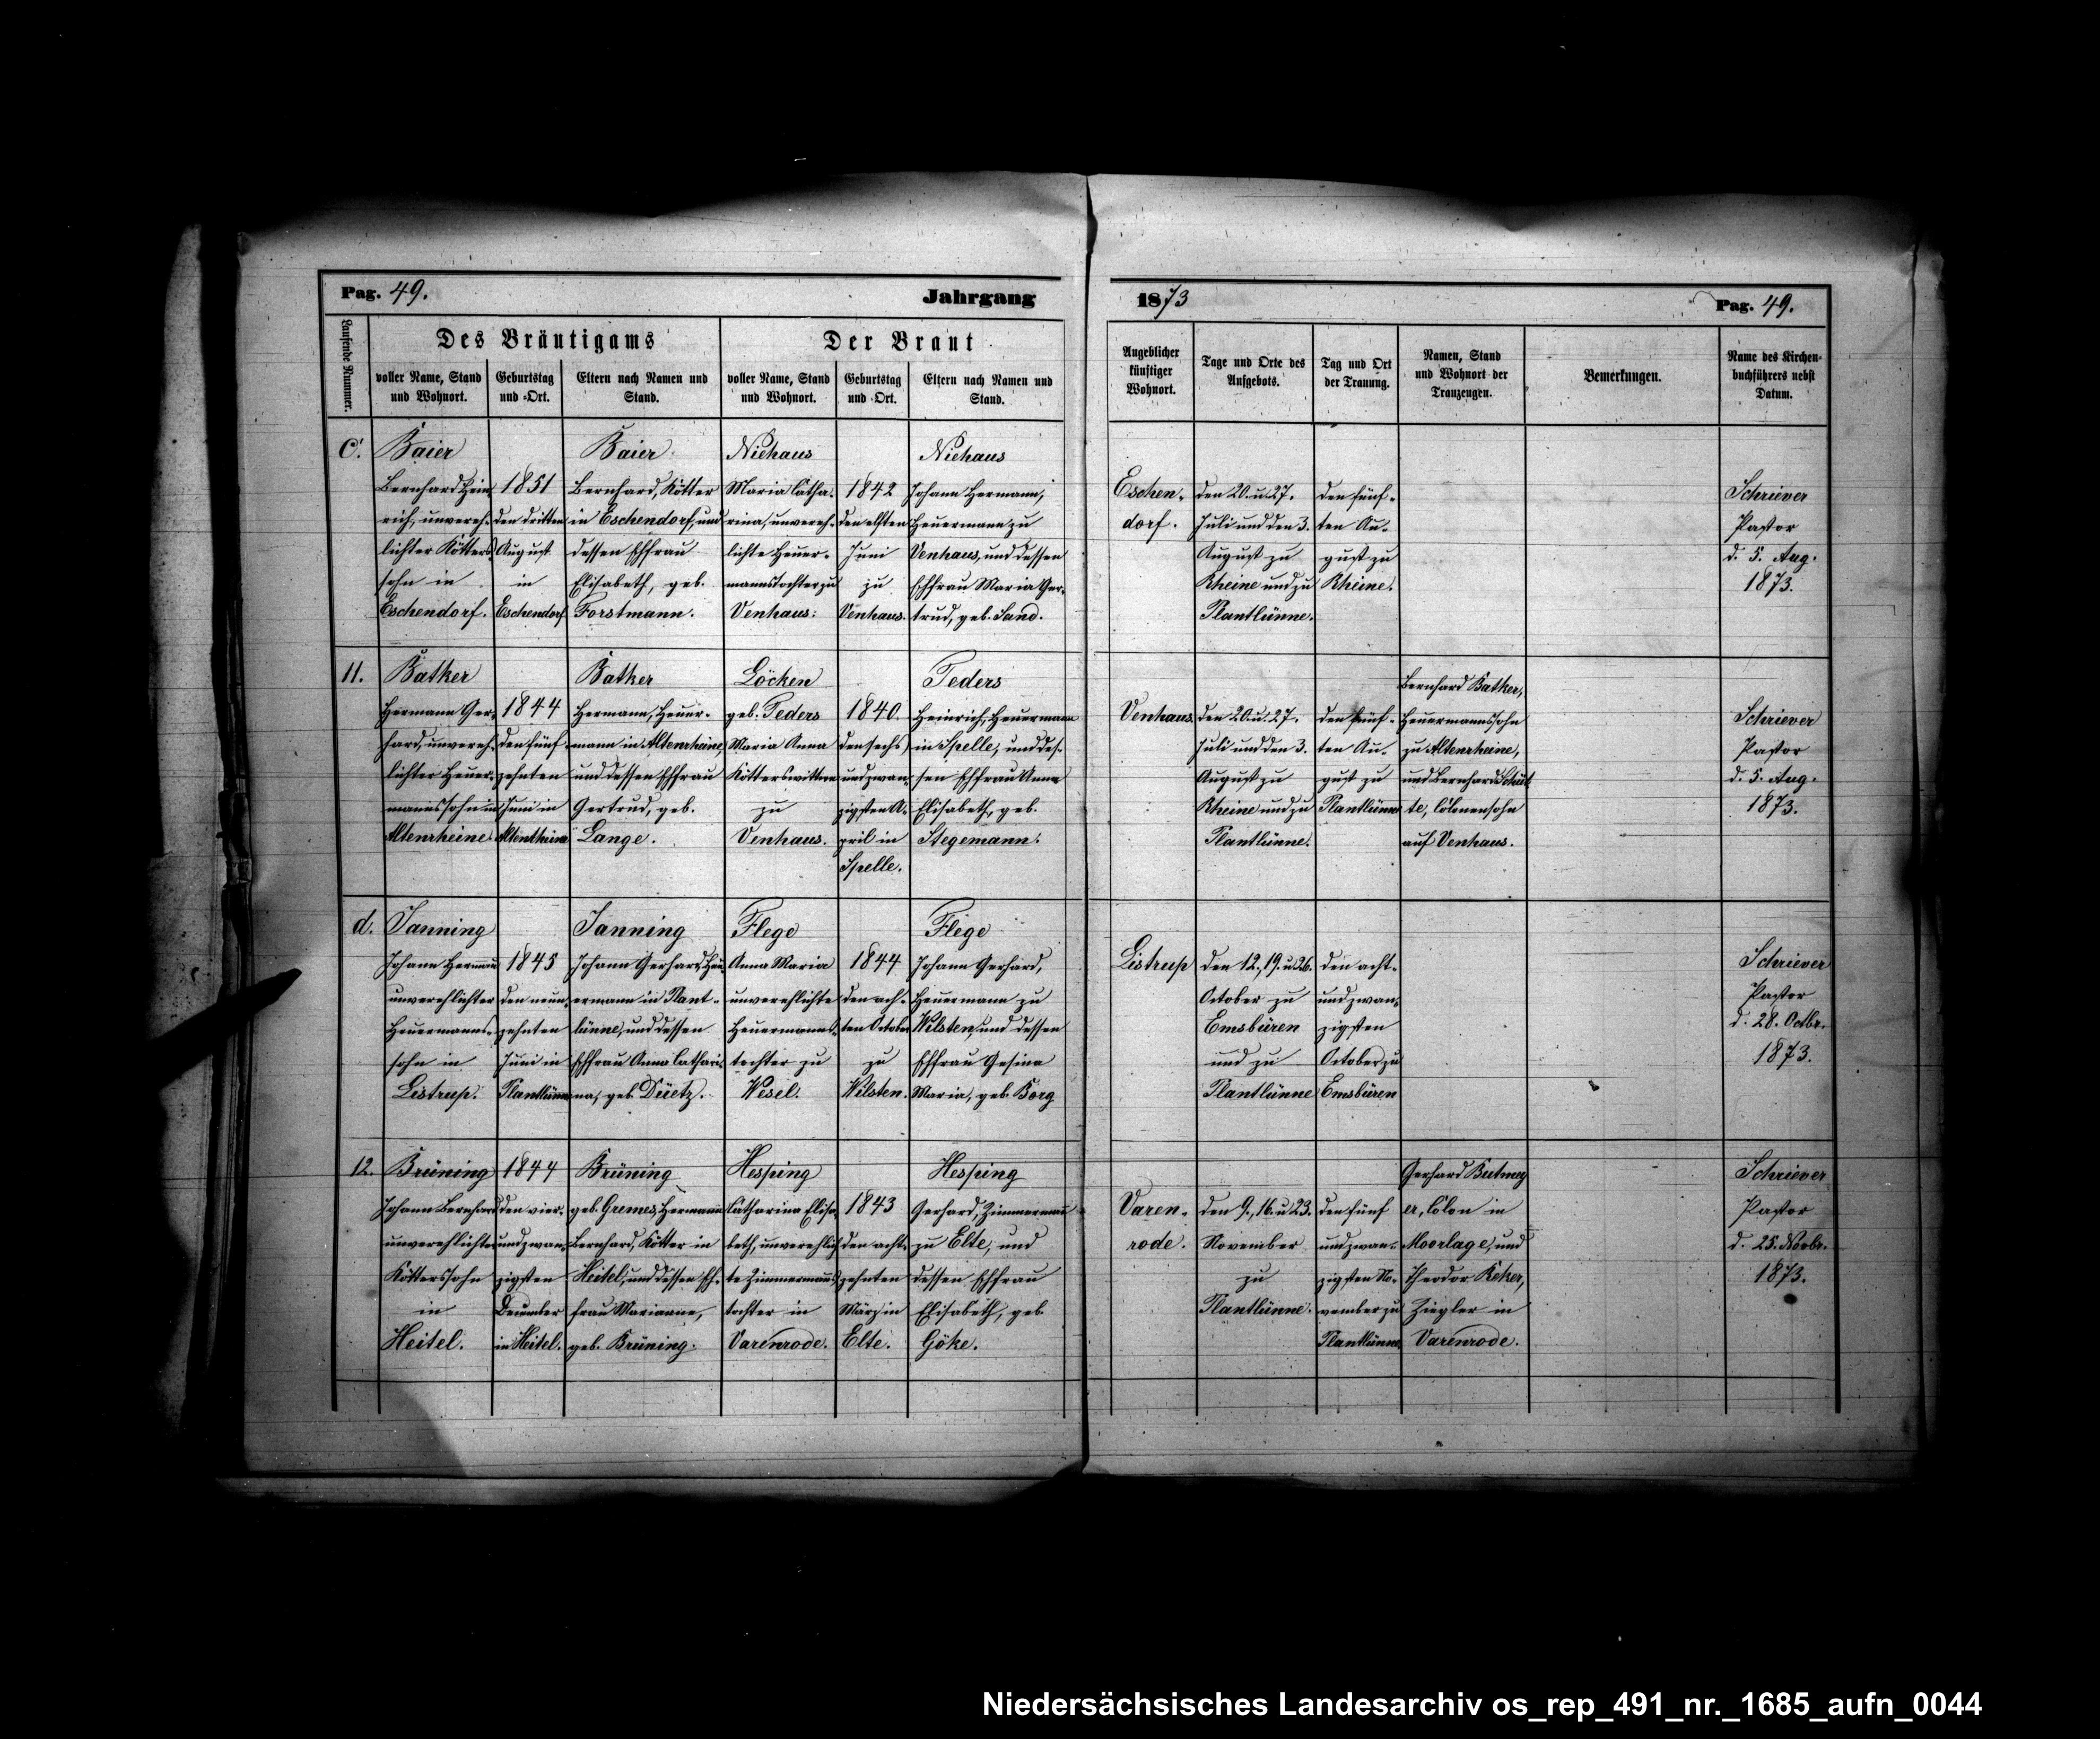 Pag. 49.
Jahrgang
1873
Pag. 49.
Laufende Nummer.
Des Bräutigams
Der Braut
voller Name, Stand
und Wohnort.
Geburtstag
und -Ort.
Eltern nach Namen und
Stand.
voller Name, Stand
und Wohnort.
Geburtstag
und -Ort.
Eltern nach Namen und
Stand.
Angeblicher
künftiger
Wohnort.
Tage und Orte des
Aufgebots.
Tag und Ort
der Trauung.
Namen, Stand
und Wohnort der
Trauzeugen.
Bemerkungen.
Name des Kirchen-
buchführers nebst
Datum.
C.
Baier
Bernhard Hein
rich, unvereh-
lichter Kötters
sohn in
Eschendorf.
1851
den dritten
August
in
Eschendorf
Baier
Bernhard, Kötter
in Eschendorf, und
dessen Ehfrau
Elisabeth, geb.
Forstmann.
Niehaus
Maria Catha-
rina, unvereh-
lichte Heuer-
mannstochter zu
Venhaus.
1842
den elften
Juni
zu
Venhaus.
Niehaus
Johann Hermann,
Heuermann zu
Venhaus, und dessen
Ehfrau Maria Ger-
trud, geb. Sand.
Eschen-
dorf.
den 20. u. 27.
Juli und den 3.
August zu
Rheine und zu
Plantlünne.
den fünf-
ten Au-
gust zu
Rheine.
Schriever
Pastor
d. 5. Aug.
1873.
11.
Batker
Hermann Ger-
hard, unvereh-
lichter Heuer-
mannssohn in
Altenrheine.
1844
den fünf
zehnten
Juni in
Altenrheine
Batker
Hermann, Heuer-
mann in Altenrheine
und dessen Ehfrau
Gertrud, geb.
Lange.
Löcken
geb. Feders
Maria Anna
Kötterswittwe
zu
Venhaus.
1840.
den sechs
und zwan-
zigsten A-
pril in
Spelle.
Feders
Heinrich, Heuermann
in Spelle, und des-
sen Ehfrau Anna
Elisabeth, geb.
Stegemann.
Venhaus.
den 20. u. 27.
Juli und den 3.
August zu
Rheine und zu
Plantlünne.
den fünf-
ten Au-
gust zu
Plantlünne
Bernhard Batker,
Heuermannssohn
zu Altenrheine,
und Bernhard Schul
te, Colonensohn
auf Venhaus.
Schriever
Pastor
d. 5. Aug.
1873.
d.
Janning
Johann Hermann
unverehlichter
Heuermanns-
sohn in
Listrup.
1845
den neun-
zehnten
Juni in
Plantlünne
Janning
Johann Gerhard, Heu
ermann in Plant-
lünne, und dessen
Ehfrau Anna Cathari-
na, geb. Düetz.
Flege
Anna Maria
unverehlichte
Heuermanns-
tochter zu
Wesel.
1844
den ach-
ten October
zu
Wilsten.
Flege
Johann Gerhard,
Heuermann zu
Wilsten, und dessen
Ehfrau Gesina
Maria, geb. Borg
Listrup
den 12., 19. u. 26.
October zu
Emsbüren
und zu
Plantlünne
den acht-
und zwan-
zigsten
October zu
Emsbüren
Schriever
Pastor
d. 28. Octbr.
1873.
12.
Brüning
Johann Bernhard
unverehlichter
Kötterssohn
in
Heitel.
1844
den vier-
und zwan-
zigsten
December
in Heitel.
Brüning
geb. Gremes, Hermann
Bernhard, Kötter in
Heitel, und dessen Eh-
frau Marianne,
geb. Brüning.
Hesping
Catharina Elisa-
beth, unverehlich
te Zimmermanns
tochter in
Varenrode.
1843
den acht-
zehnten
März in
Elte.
Hesping
Gerhard, Zimmermann
zu Elte, und
dessen Ehfrau
Elisabeth, geb.
Göke.
Varen-
rode.
den 9., 16. u 23.
November
zu
Plantlünne.
den fünf
und zwan-
zigsten No-
vember zu
Plantlünne.
Gerhard Butmey
er, Colon in
Moorlage, und
Theodor Reker,
Ziegler in
Varenrode.
Schriever
Pastor
d. 25. Novbr.
1873.
Niedersächsisches Landesarchiv os_rep_491_nr._1685_aufn_0044